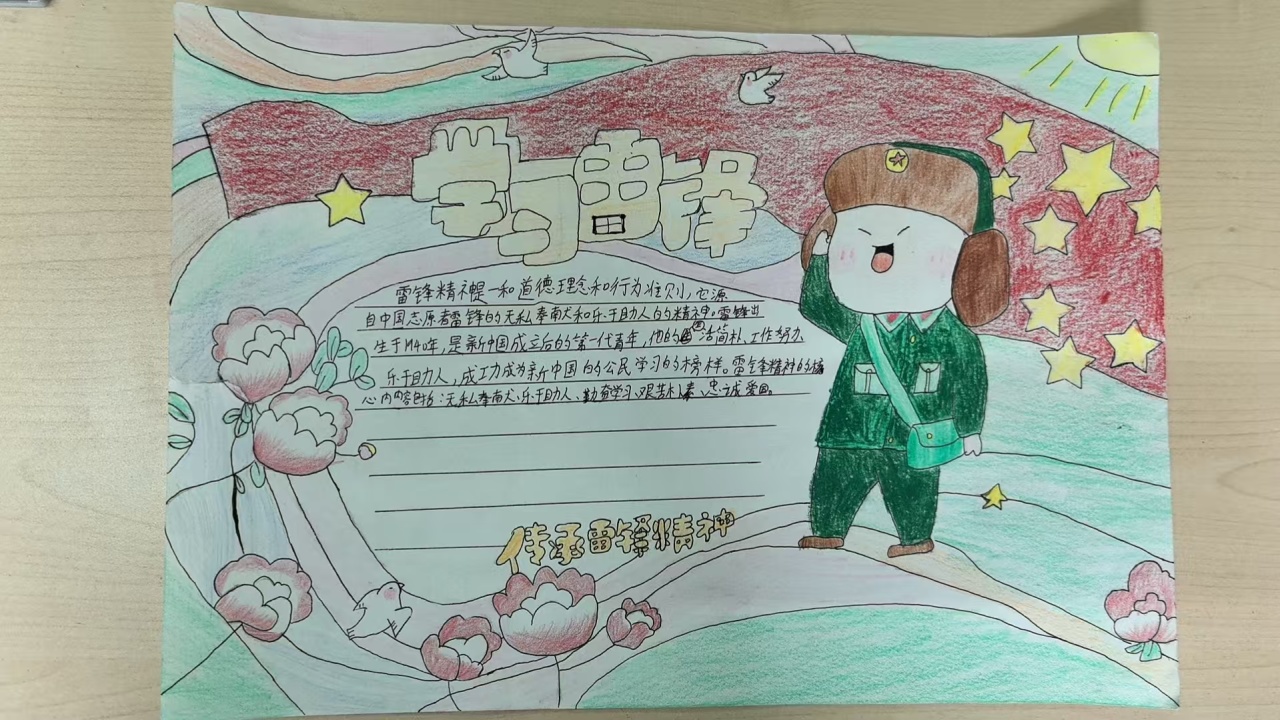 学习雷锋
雷锋精神是一种道德理念和行为准则,它源
自中国志愿者雷锋的无私奉献和乐于助人的精神。雷锋出
生于1940年,是新中国成立后的第一代青年,他的生活简朴、工作努力、
乐于助人,成功成为新中国的公民学习的榜样。雷锋精神的核
心内容包括:无私奉献、乐于助人、勤奋学习、艰苦朴素、忠诚爱国。
传承雷锋精神